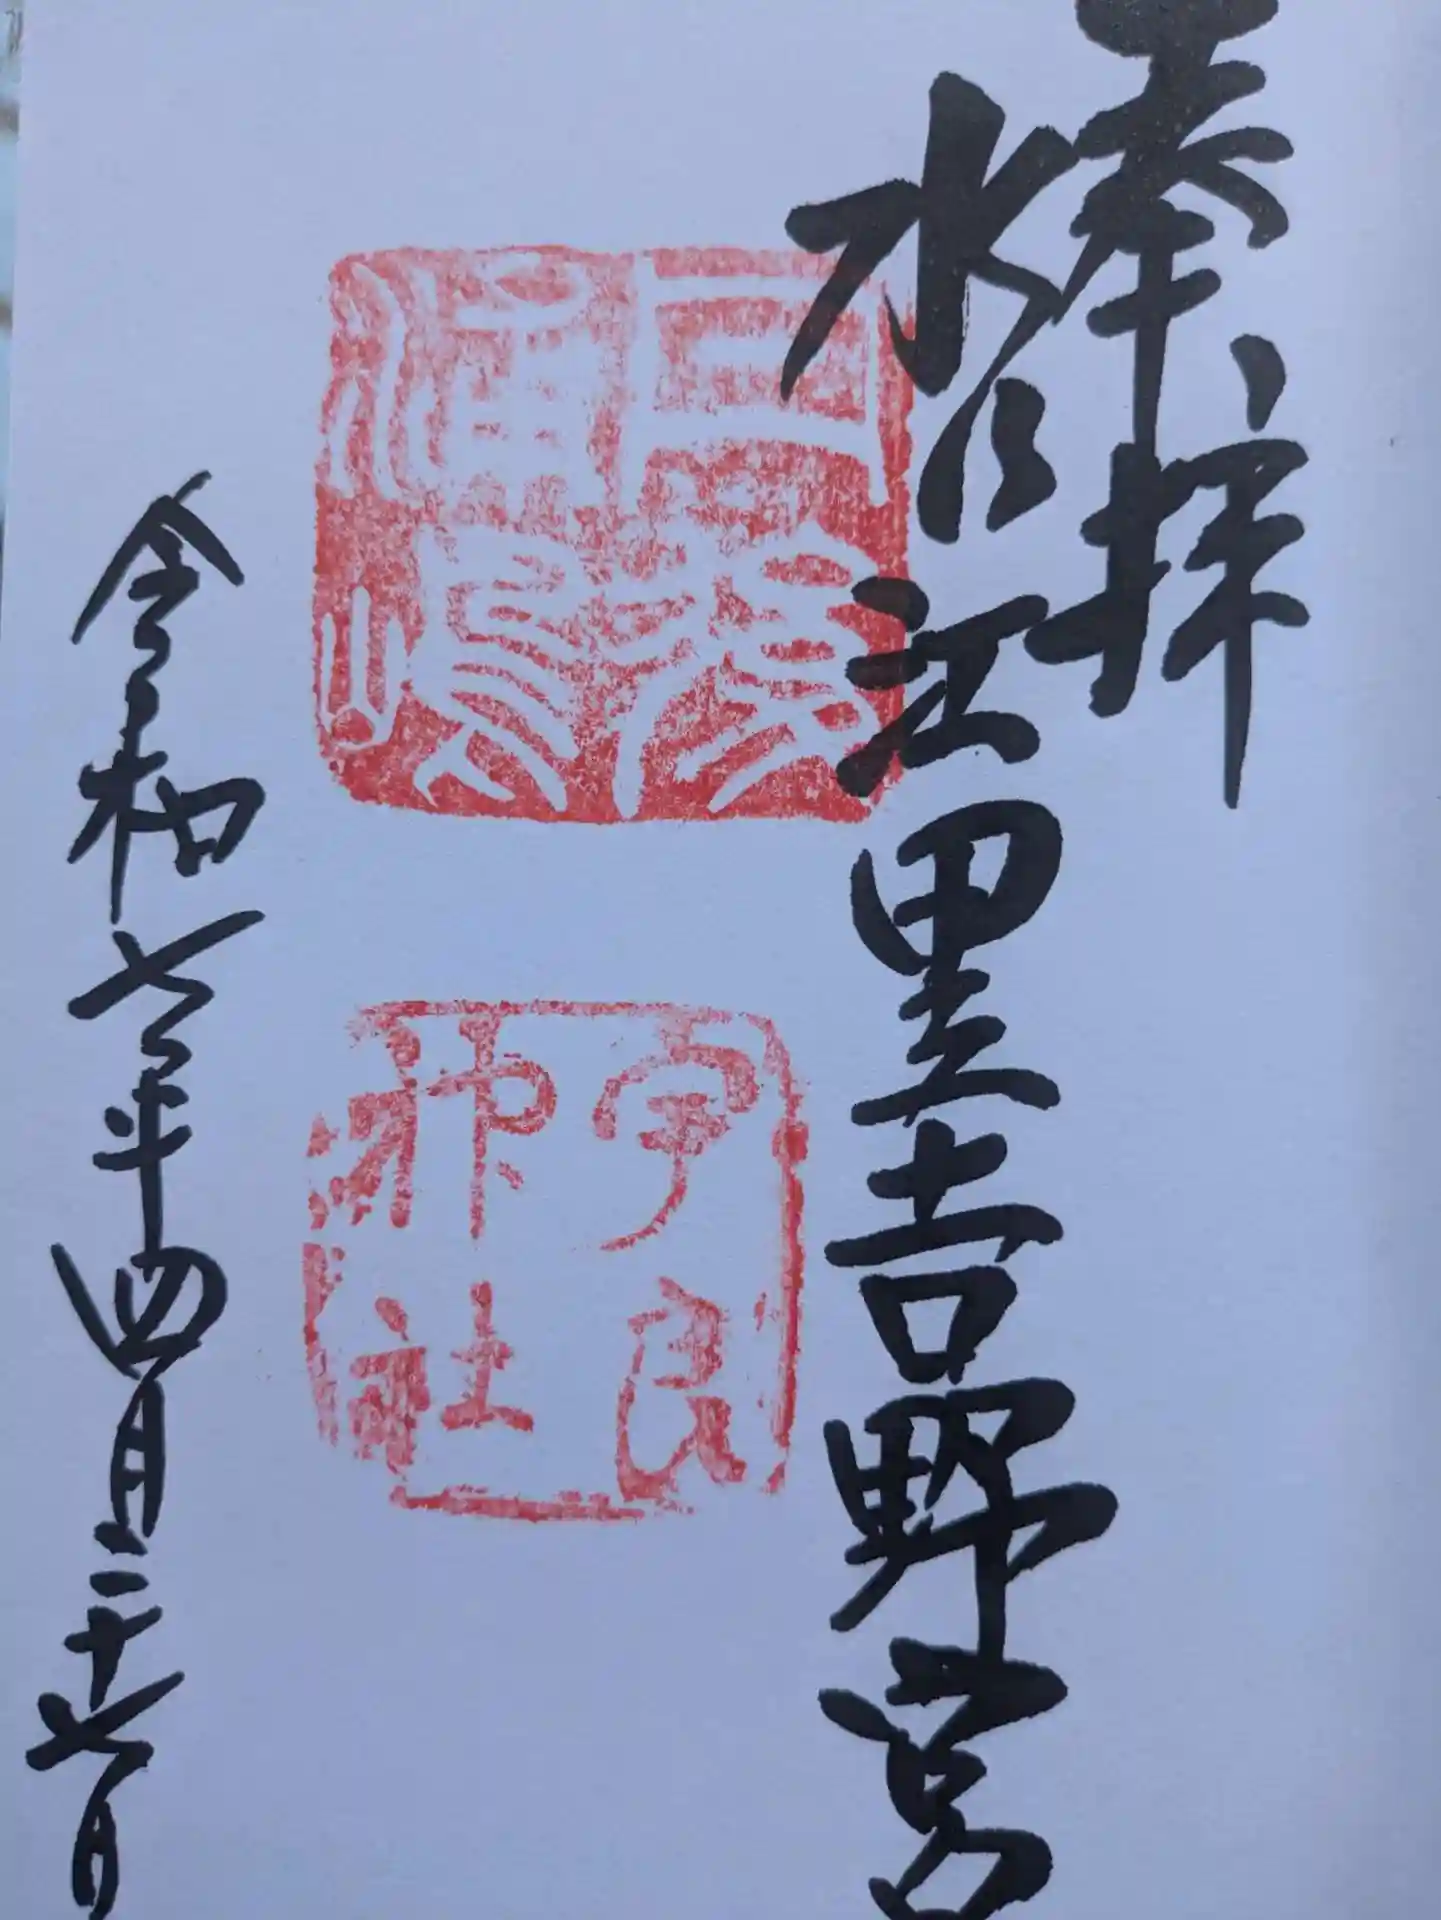 奉拝
水分江里吉野宮
宇良神社
令和七年四月二十七日